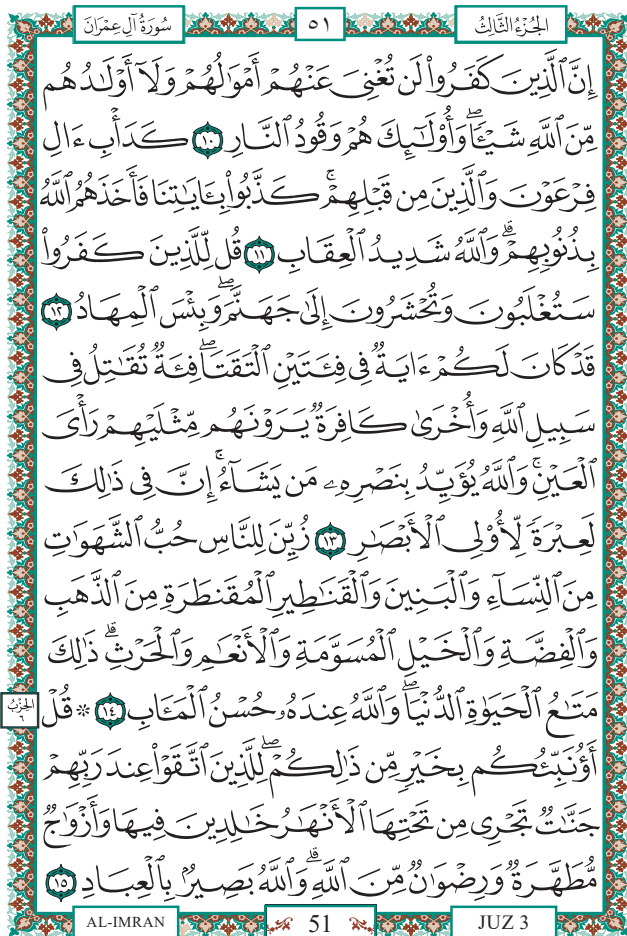 سُورَةُ آلِ عِمْرَان ٥١ الجُزْءُ الثَّالِثُ
إِنَّ ٱلَّذِينَ كَفَرُوا۟ لَن تُغْنِىَ عَنْهُمْ أَمْوَٰلُهُمْ وَلَآ أَوْلَـٰدُهُم
مِّنَ ٱللَّهِ شَيْـًٔا ۖ وَأُو۟لَـٰٓئِكَ هُمْ وَقُودُ ٱلنَّارِ ١٠ كَدَأْبِ ءَالِ
فِرْعَوْنَ وَٱلَّذِينَ مِن قَبْلِهِمْ ۚ كَذَّبُوا۟ بِـَٔايَـٰتِنَا فَأَخَذَهُمُ ٱللَّهُ
بِذُنُوبِهِمْ ۗ وَٱللَّهُ شَدِيدُ ٱلْعِقَابِ ١١ قُل لِّلَّذِينَ كَفَرُوا۟
سَتُغْلَبُونَ وَتُحْشَرُونَ إِلَىٰ جَهَنَّمَ ۖ وَبِئْسَ ٱلْمِهَادُ ١٢
قَدْ كَانَ لَكُمْ ءَايَةٌ فِى فِئَتَيْنِ ٱلْتَقَتَا ۖ فِئَةٌ تُقَـٰتِلُ فِى
سَبِيلِ ٱللَّهِ وَأُخْرَىٰ كَافِرَةٌ يَرَوْنَهُم مِّثْلَيْهِمْ رَأْىَ
ٱلْعَيْنِ ۚ وَٱللَّهُ يُؤَيِّدُ بِنَصْرِهِۦ مَن يَشَآءُ ۗ إِنَّ فِى ذَٰلِكَ
لَعِبْرَةً لِّأُو۟لِى ٱلْأَبْصَـٰرِ ١٣ زُيِّنَ لِلنَّاسِ حُبُّ ٱلشَّهَوَٰتِ
مِنَ ٱلنِّسَآءِ وَٱلْبَنِينَ وَٱلْقَنَـٰطِيرِ ٱلْمُقَنطَرَةِ مِنَ ٱلذَّهَبِ
وَٱلْفِضَّةِ وَٱلْخَيْلِ ٱلْمُسَوَّمَةِ وَٱلْأَنْعَـٰمِ وَٱلْحَرْثِ ۗ ذَٰلِكَ
مَتَـٰعُ ٱلْحَيَوٰةِ ٱلدُّنْيَا ۖ وَٱللَّهُ عِندَهُۥ حُسْنُ ٱلْمَـَٔابِ ١٤ ۞ قُلْ
الحِزْبُ ٦
أَؤُنَبِّئُكُم بِخَيْرٍ مِّن ذَٰلِكُمْ ۖ لِلَّذِينَ ٱتَّقَوْا۟ عِندَ رَبِّهِمْ
جَنَّـٰتٌ تَجْرِى مِن تَحْتِهَا ٱلْأَنْهَـٰرُ خَـٰلِدِينَ فِيهَا وَأَزْوَٰجٌ
مُّطَهَّرَةٌ وَرِضْوَٰنٌ مِّنَ ٱللَّهِ ۗ وَٱللَّهُ بَصِيرٌۢ بِٱلْعِبَادِ ١٥
AL-IMRAN 51 JUZ 3